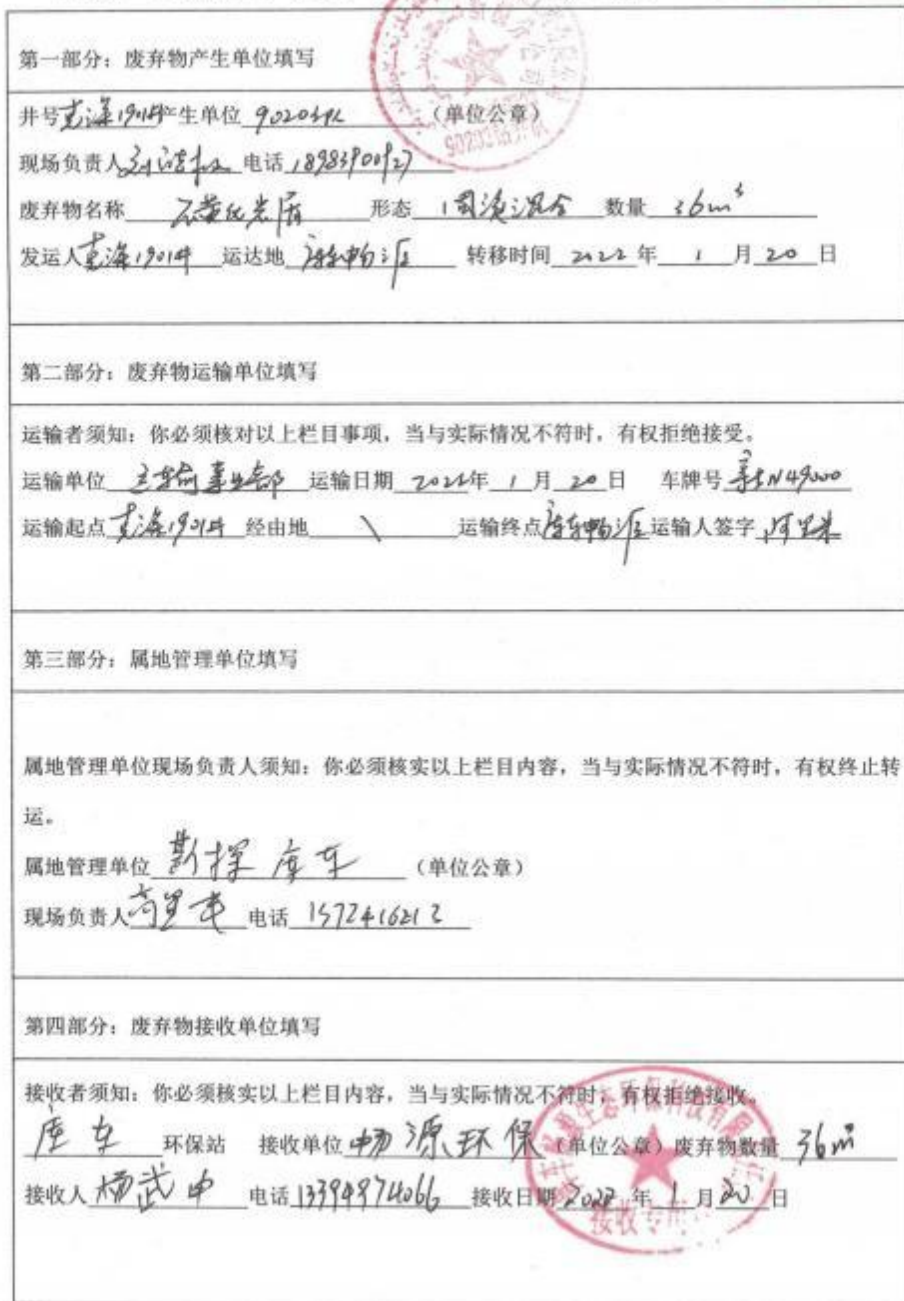 第一部分：废弃物产生单位填写
井号 克深1901井 产生单位 90204队 （单位公章）
现场负责人 电话 18983900927
废弃物名称 形态 固液混合 数量 36m³
发运人 克深1901井 运达地 库车畅源 转移时间 2022 年 1 月 20 日
第二部分：废弃物运输单位填写
运输者须知：你必须核对以上栏目事项，当与实际情况不符时，有权拒绝接受。
运输单位 运输事业部 运输日期 2022年 1 月 20 日 车牌号
运输起点 克深1901井 经由地 \ 运输终点 库车畅源 运输人签字
第三部分：属地管理单位填写
属地管理单位现场负责人须知：你必须核实以上栏目内容，当与实际情况不符时，有权终止转
运。
属地管理单位 勘探 库车 （单位公章）
现场负责人 电话
第四部分：废弃物接收单位填写
接收者须知：你必须核实以上栏目内容，当与实际情况不符时，有权拒绝接收。
库车 环保站 接收单位 畅源环保 （单位公章）废弃物数量 36m³
接收人 杨武中 电话 13394974066 接收日期 2022 年 1 月 20 日
接收专用